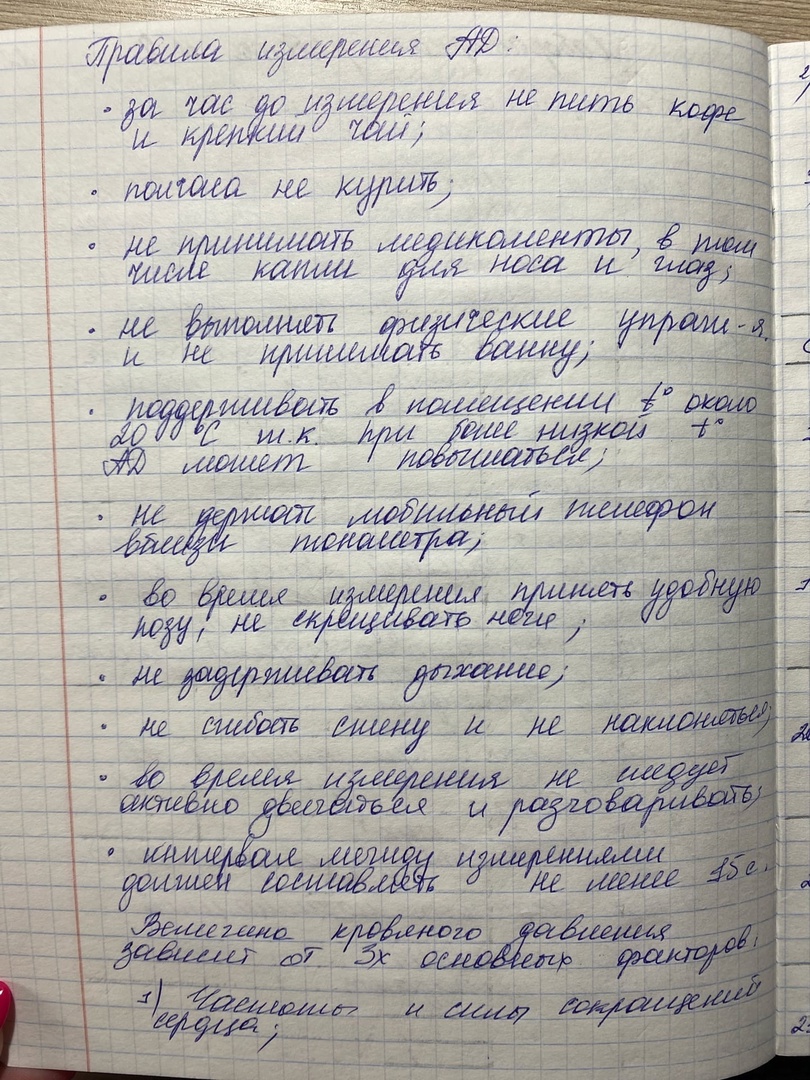 Правила измерения АД:
• за час до измерения не пить кофе
и крепкий чай;
• полчаса не курить;
• не принимать медикаменты, в том
числе капли для носа и глаз;
• не выполнять физические упраж-я.
и не принимать ванну;
• поддерживать в помещении t° около
20 °С т.к. при более низкой t°
АД может повышаться;
• не держать мобильный телефон
вблизи тонометра;
• во время измерения принять удобную
позу, не скрещивать ноги;
• не задерживать дыхание;
• не сгибать спину и не наклоняться;
• во время измерения не следует
активно двигаться и разговаривать;
• интервал между измерениями
должен составлять не менее 15с.
Величина кровяного давления
зависит от 3х основных факторов:
1) Частоты и силы сокращений
сердца;